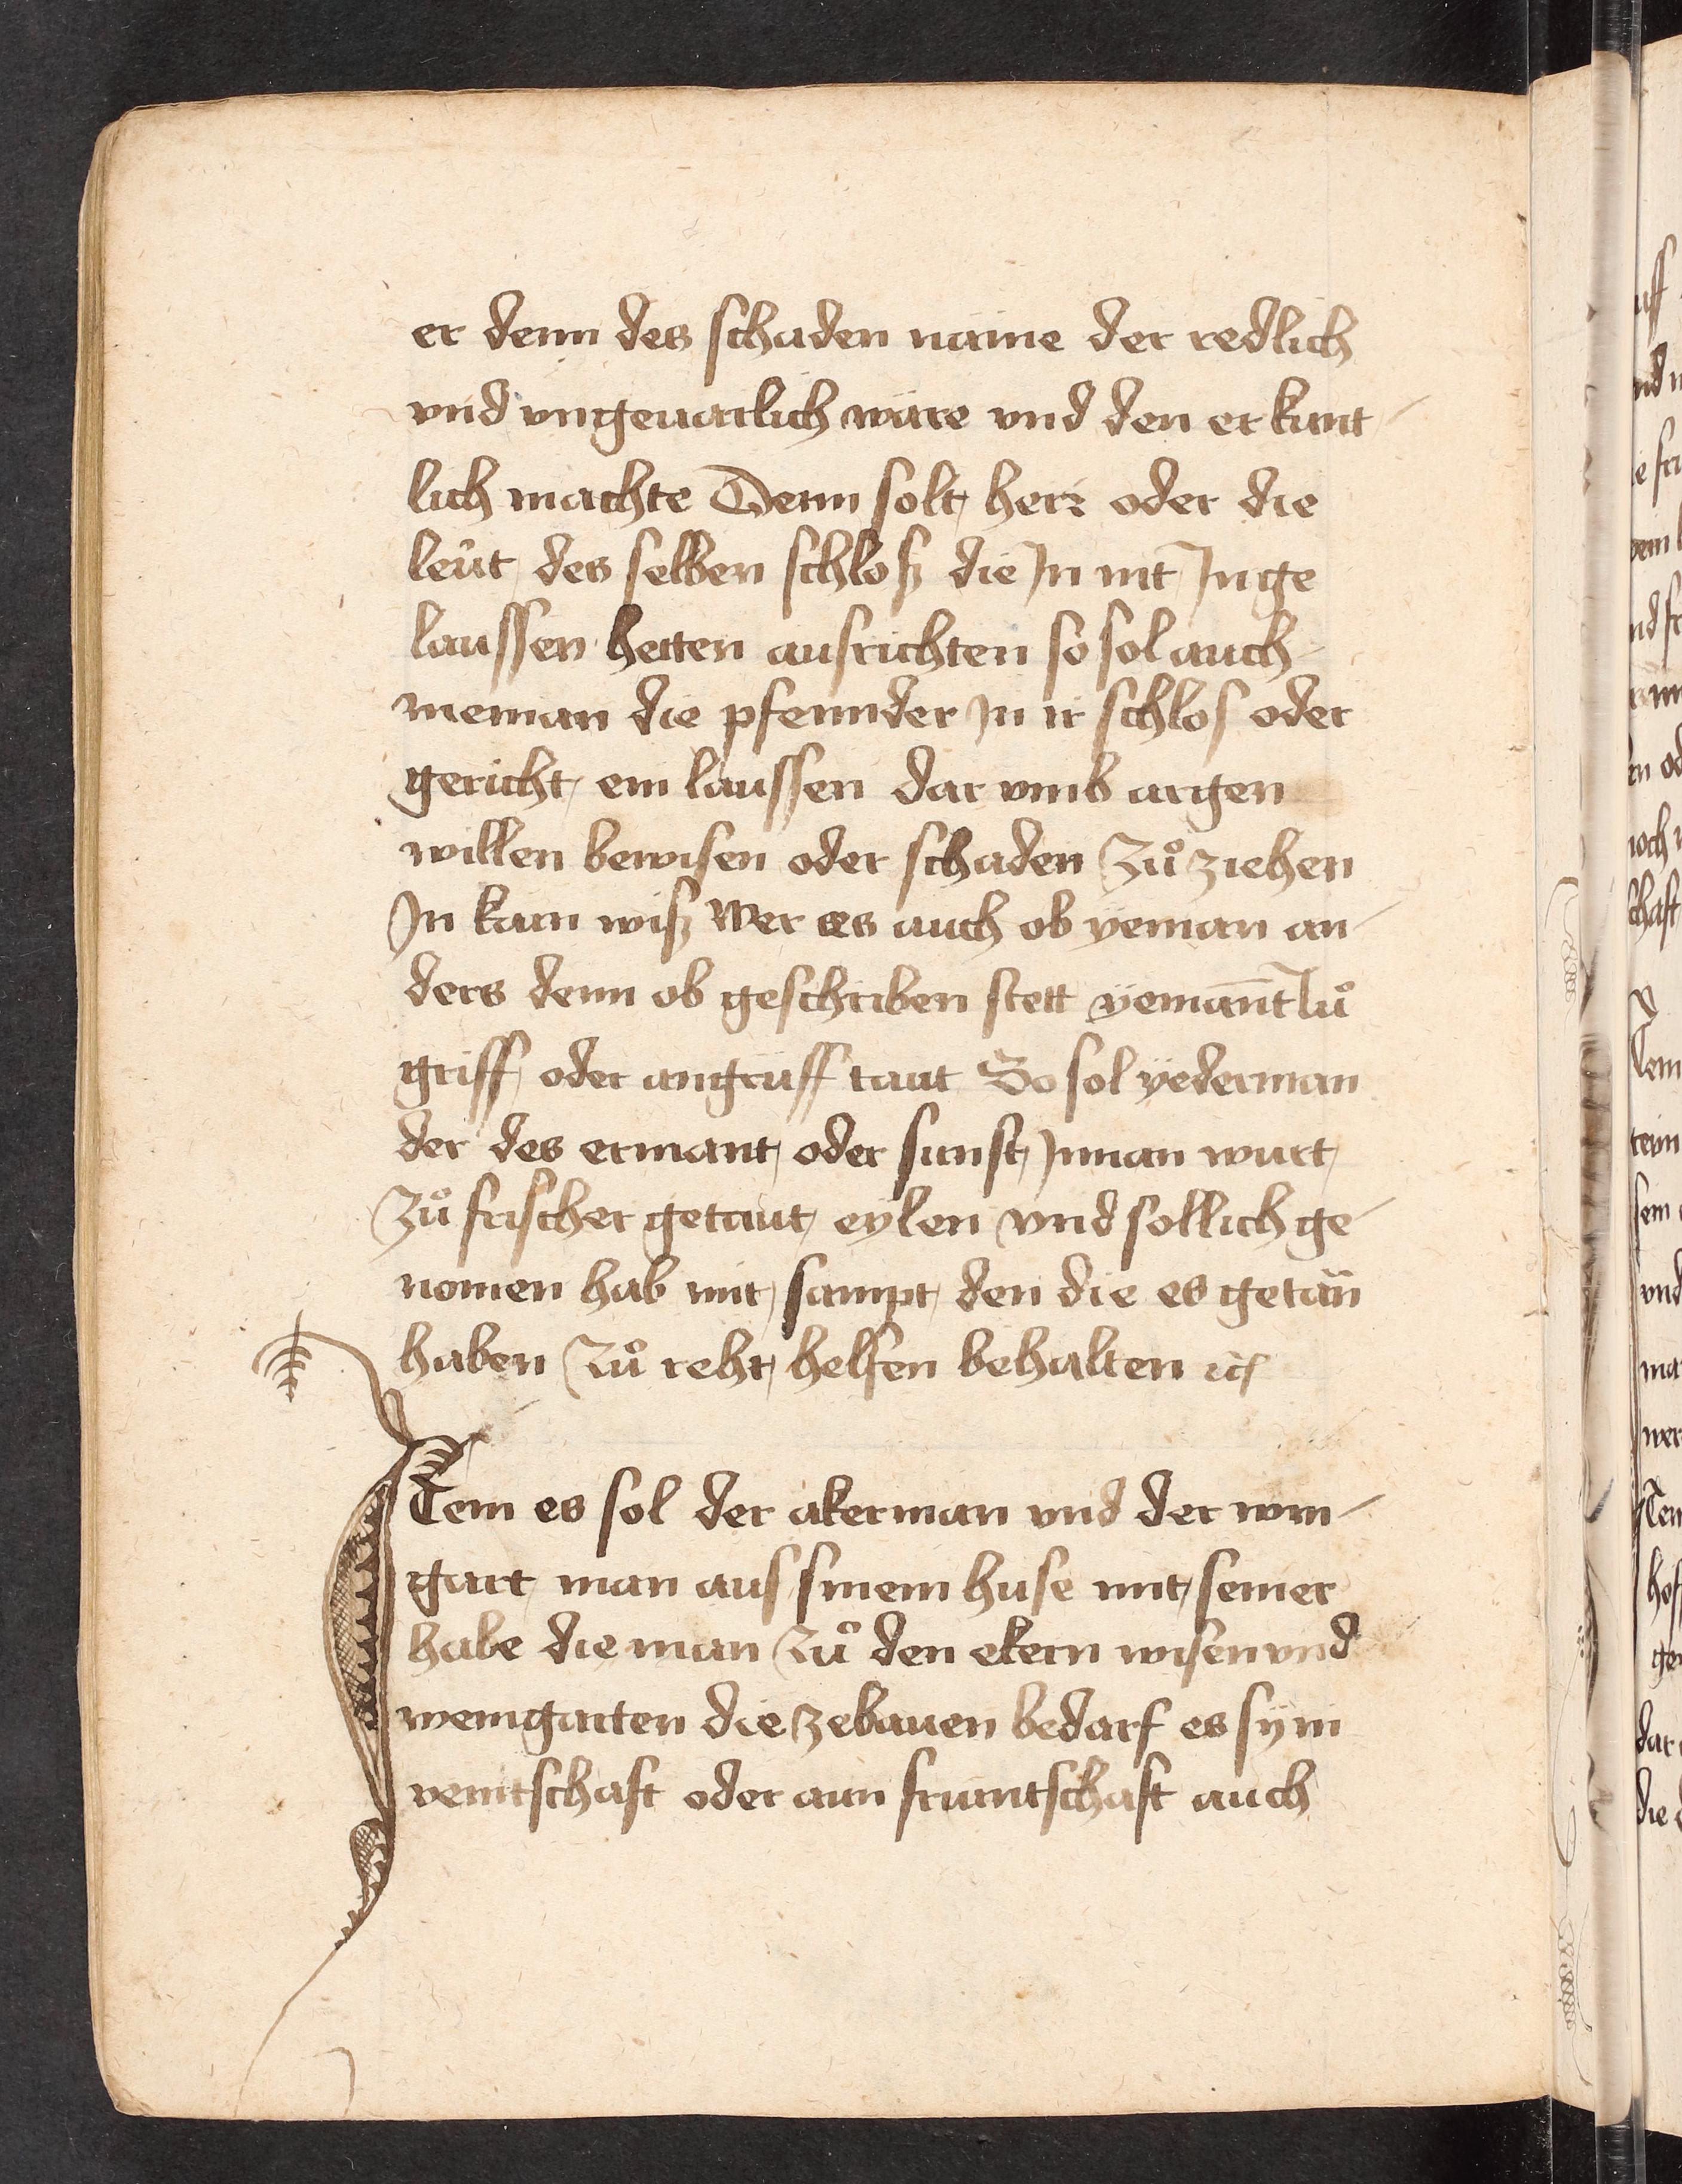 er denn des schaden näme der redlich
vnd vngeuarlich wäre vnd den er kunt
lich machte Denn solt herr oder die
leüt des selben schloß die In nit Inge
laussen hetten ausrichten so sol auch
nieman die pfennder In ir schlos oder
gericht ein laussen dar vmb argen
willen bewisen oder schaden Zuͦ ziehen
In kain wiß Wer es auch ob yeman an
ders denn ob geschriben stett yemant̄ luͦ
griff oder angriff taut So sol yederman
der des ermant oder sunst Innan wurt
Zuͦ frischer getaut eylen vnd sollich ge
nomen hab mit sampt den die es getän
haben Zuͦ reht helfen behalten etc
Item es sol der akerman vnd der win
gart man aus sinem huse mit seiner
habe die man Zuͦ den ekern wisen vnd
weingarten die zebauen bedarf es syͤ in
veintschaft oder ann fruntschaft auch